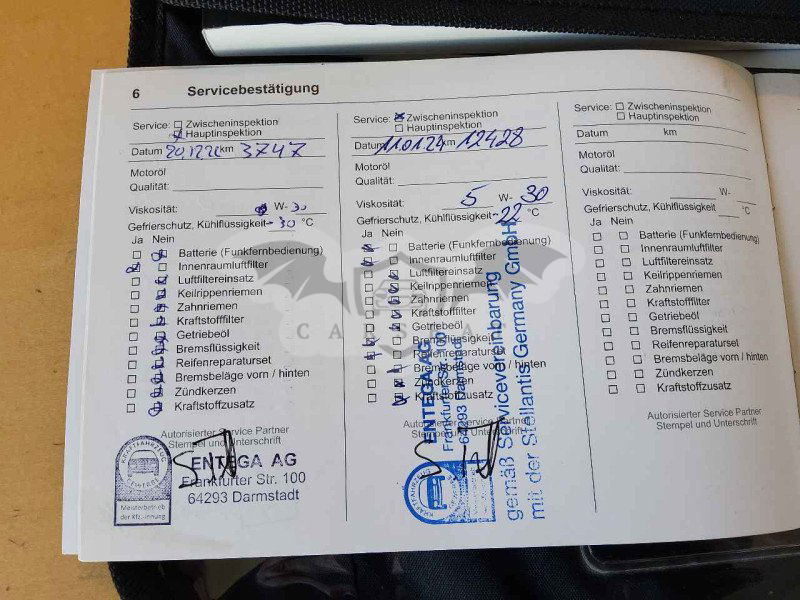 6 Servicebestätigung
Service: Zwischeninspektion
Hauptinspektion
Datum km 3747
Motoröl
Qualität:
Viskosität: W- 30
Gefrierschutz, Kühlflüssigkeit -30 °C
Ja Nein
Batterie (Funkfernbedienung)
Innenraumluftfilter
Luftfiltereinsatz
Keilrippenriemen
Zahnriemen
Kraftstofffilter
Getriebeöl
Bremsflüssigkeit
Reifenreparaturset
Bremsbeläge vorn / hinten
Zündkerzen
Kraftstoffzusatz
Autorisierter Service Partner
Stempel und Unterschrift
KRAFTFAHRZEUG
GEWERBE
Meisterbetrieb
der Kfz-Innung
ENTEGA AG
Frankfurter Str. 100
64293 Darmstadt
Service: Zwischeninspektion
Hauptinspektion
Datum 110124 km 12428
Motoröl
Qualität:
Viskosität: 5 W- 30
Gefrierschutz, Kühlflüssigkeit -22 °C
Ja Nein
Batterie (Funkfernbedienung)
Innenraumluftfilter
Luftfiltereinsatz
Keilrippenriemen
Zahnriemen
Kraftstofffilter
Getriebeöl
Bremsflüssigkeit
Reifenreparaturset
Bremsbeläge vorn / hinten
Zündkerzen
Kraftstoffzusatz
Autorisierter Service Partner
Stempel und Unterschrift
KRAFTFAHRZEUG
ENTEGA AG
Frankfurter Str. 100
64293 Darmstadt
gemäß Servicevereinbarung
mit der Stellantis Germany GmbH
Service: Zwischeninspektion
Hauptinspektion
Datum km
Motoröl
Qualität:
Viskosität: W-
Gefrierschutz, Kühlflüssigkeit °C
Ja Nein
Batterie (Funkfernbedienung)
Innenraumluftfilter
Luftfiltereinsatz
Keilrippenriemen
Zahnriemen
Kraftstofffilter
Getriebeöl
Bremsflüssigkeit
Reifenreparaturset
Bremsbeläge vorn / hinten
Zündkerzen
Kraftstoffzusatz
Autorisierter Service Partner
Stempel und Unterschrift